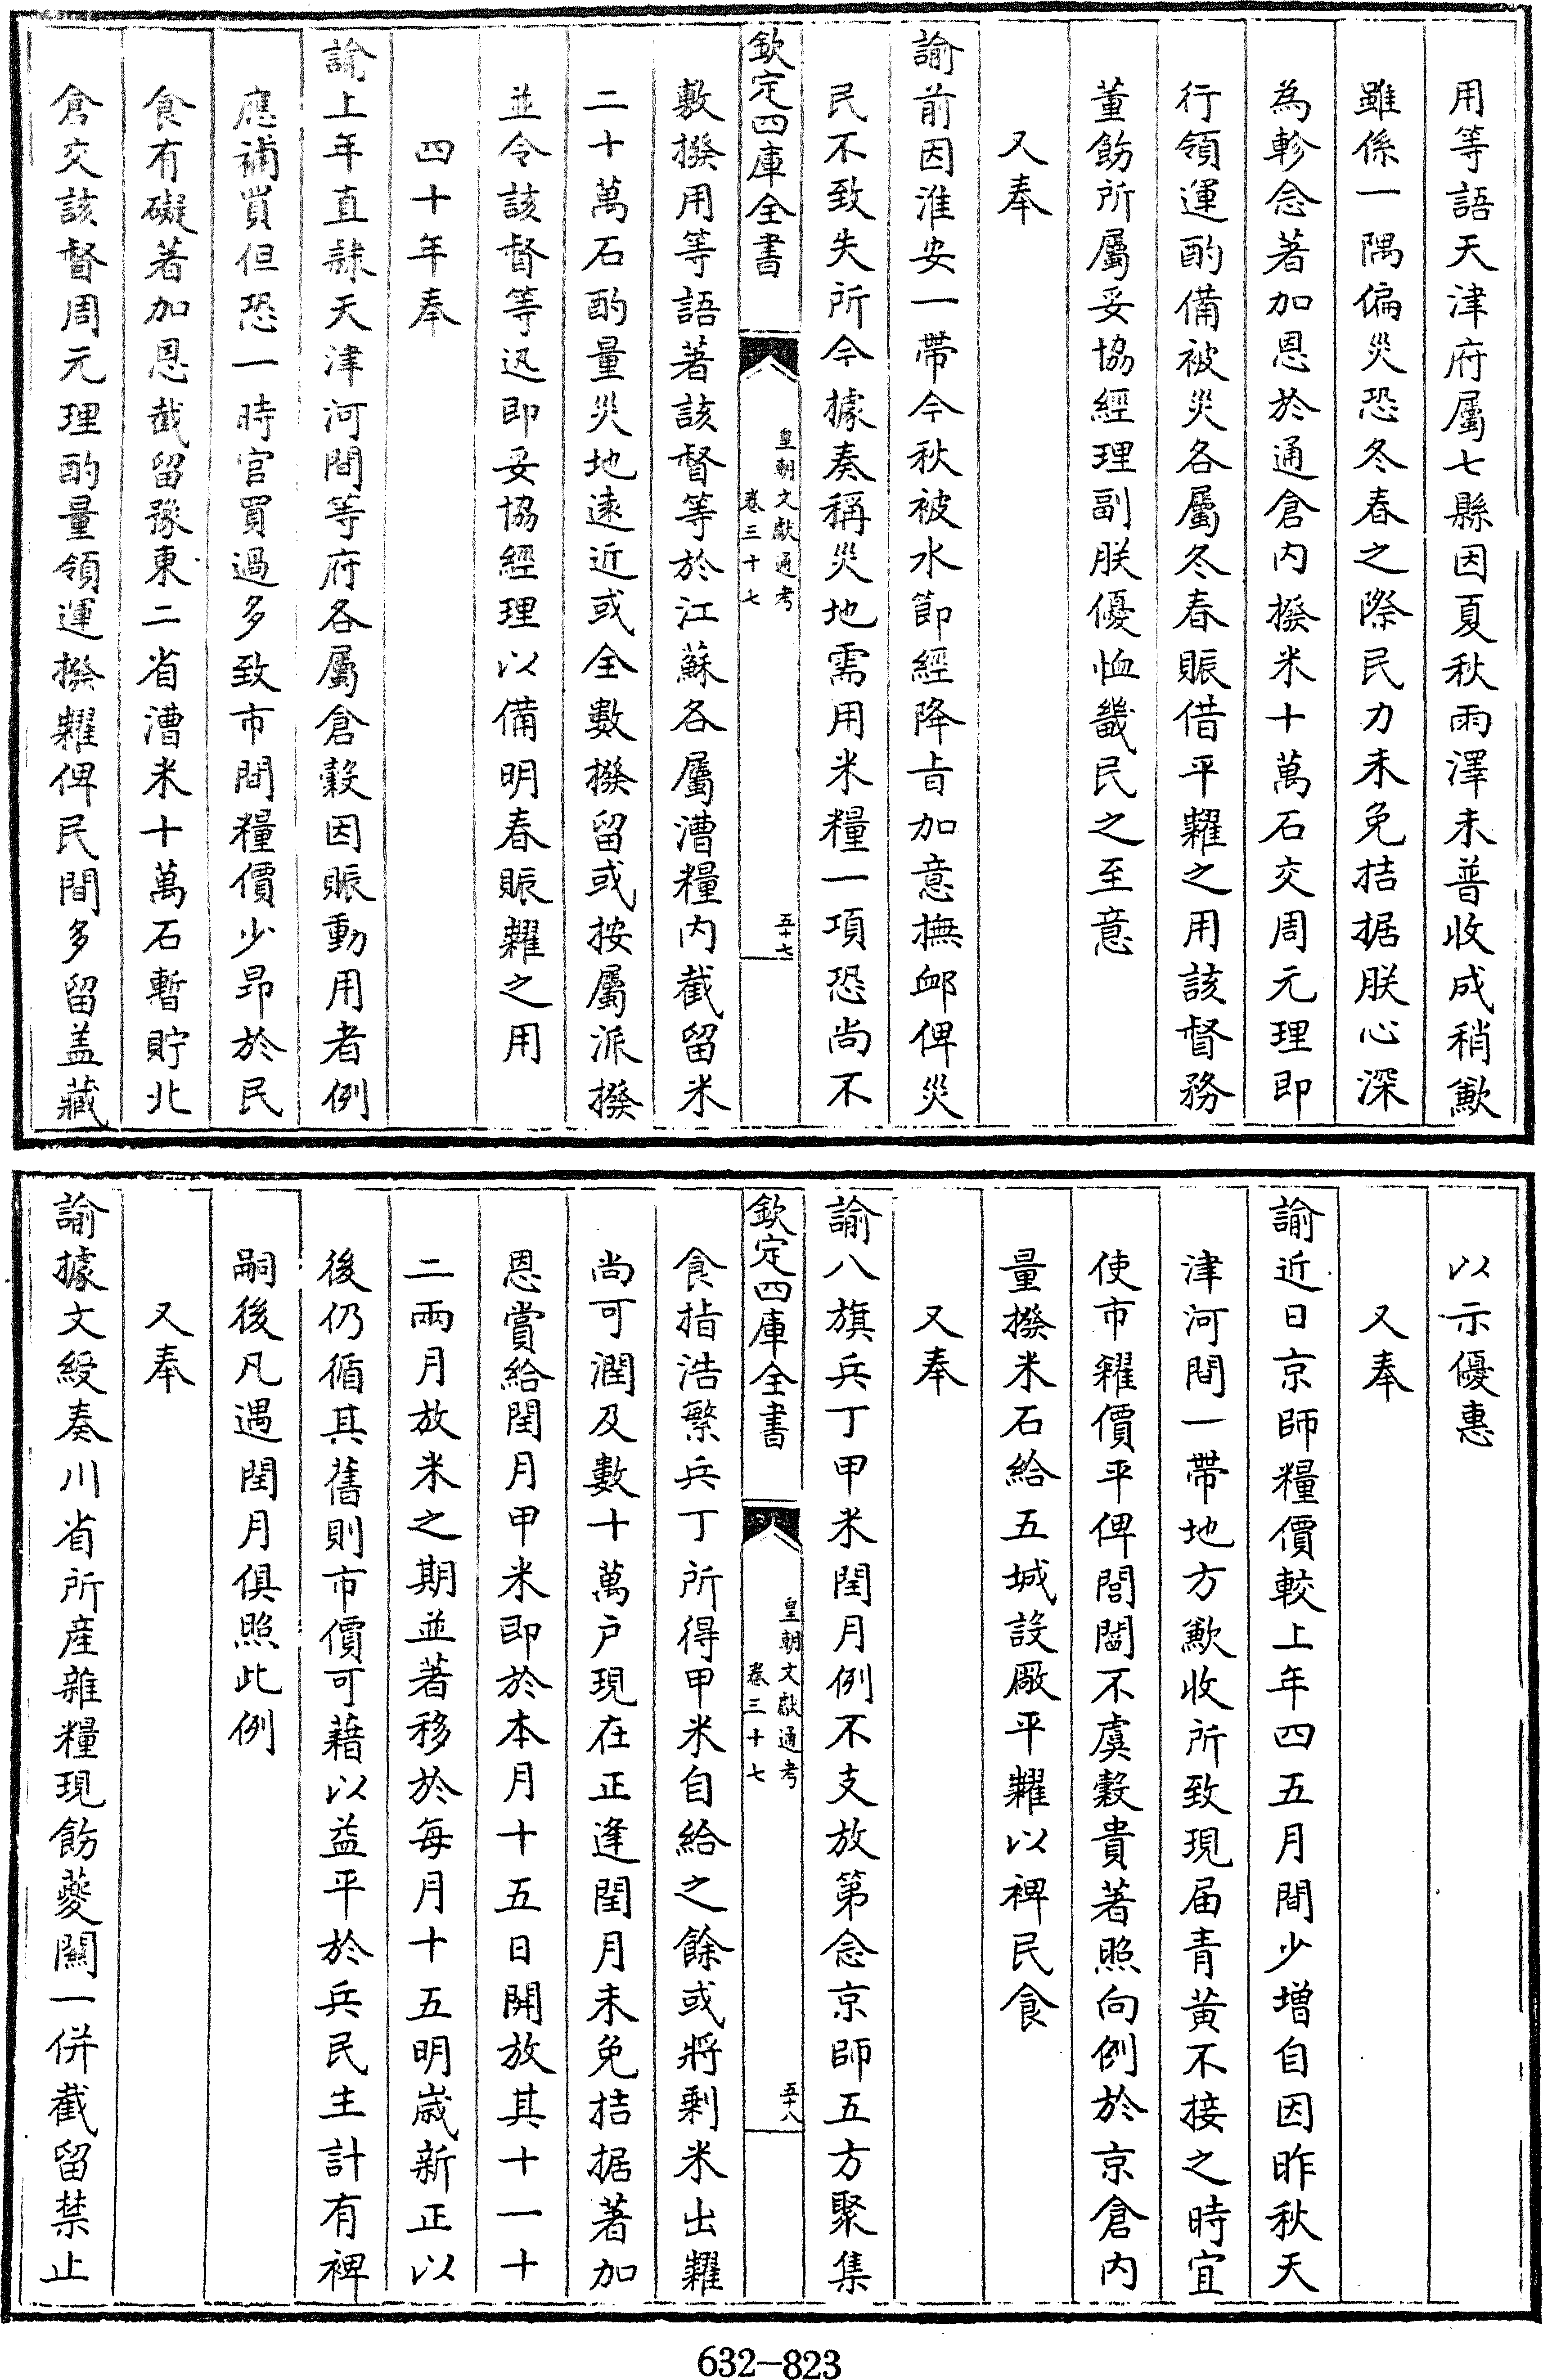 用等語天津府屬七縣因夏秋雨澤未普收成稍歉
雖係一隅偏災恐冬春之際民力未免拮据朕心深
為軫念著加恩於通倉内撥米十萬石交周元理即
行領運酌備被災各屬冬春賑借平糶之用該督務
董飭所屬妥協經理副朕優恤畿民之至意
又奉
諭前因淮安一帶今秋被水節經降旨加意撫䘏俾災
民不致失所今據奏稱災地需用米糧一項恐尚不
欽定四庫全書
皇朝文獻通考
卷三十七
五十七
敷撥用等語著該督等於江蘇各屬漕糧内截留米
二十萬石酌量災地遠近或全數撥留或按屬派撥
並令該督等迅即妥協經理以備明春賑糶之用
四十年奉
諭上年直隸天津河間等府各屬倉穀因賑動用者例
應補買但恐一時官買過多致市間糧價少昂於民
食有礙著加恩截留豫東二省漕米十萬石暫貯北
倉交該督周元理酌量領運撥糶俾民間多留盖藏
以示優惠
又奉
諭近日京師糧價較上年四五月間少增自因昨秋天
津河間一帶地方歉收所致現届青黄不接之時宜
使市糴價平俾閭閻不虞穀貴著照向例於京倉内
量撥米石給五城設厰平糶以裨民食
又奉
諭八旗兵丁甲米閏月例不支放第念京師五方聚集
欽定四庫全書
皇朝文獻通考
卷三十七
五十八
食指浩繁兵丁所得甲米自給之餘或將剩米出糶
尚可潤及數十萬户現在正逢閏月未免拮据著加
恩賞給閏月甲米即於本月十五日開放其十一十
二兩月放米之期並著移於每月十五明歲新正以
後仍循其舊則市價可藉以益平於兵民生計有裨
嗣後凡遇閏月俱照此例
又奉
諭據文綬奏川省所産雜糧現飭夔關一併截留禁止
632-823